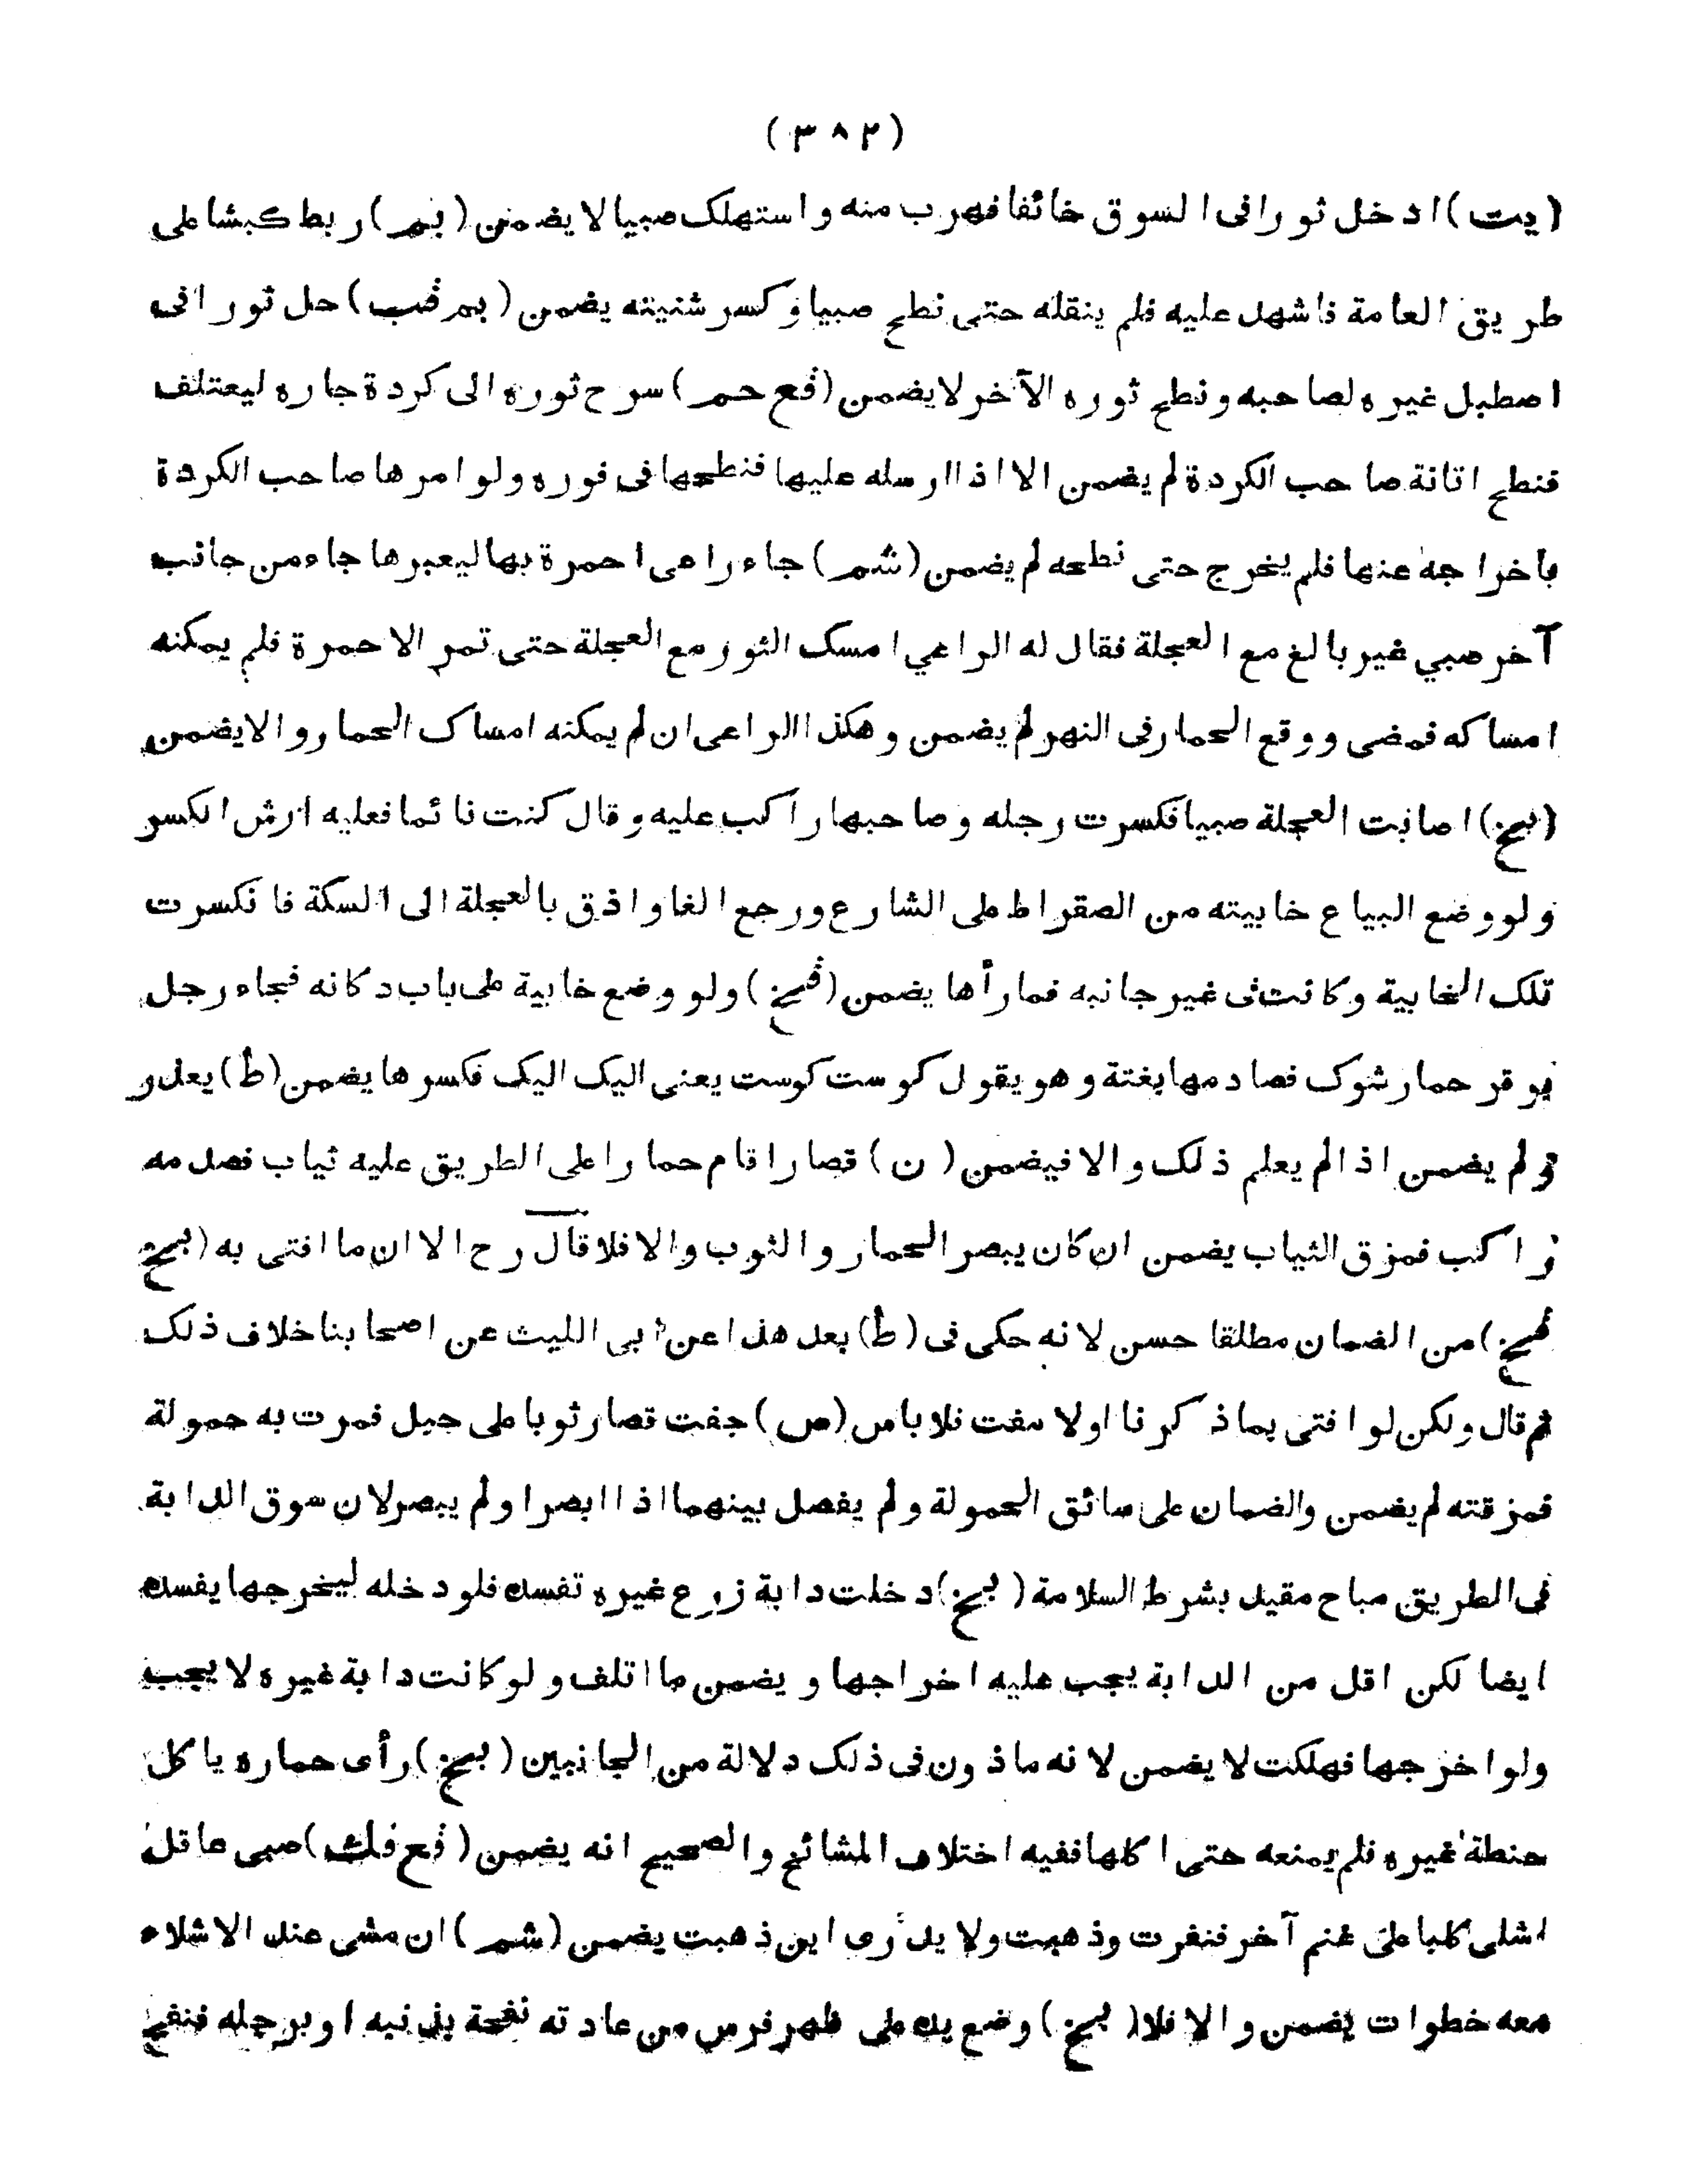 (٣٨٢)
(يت) ادخل ثورا فى السوق خائفا فهرب منه واستهلك صبيا لا يضمن (بم) ربط كبشا على
طريق العامة فاشهد عليه فلم ينقله حتى نطح صبيا وكسر شنيته يضمن (بم قب) حل ثورا فى
اصطبل غيره لصاحبه ونطح ثوره الآخر لا يضمن (قع حم) سرح ثوره الى كردة جاره ليعتلف
فنطح اتانة صاحب الكردة لم يضمن الا اذا ارسله عليها فنطحها فى فوره ولو امرها صاحب الكردة
باخراجه عنها فلم يخرج حتى نطحه لم يضمن (شم) جاء راعى احمرة بها ليعبرها جاء من جانب
آخر صبي غير بالغ مع العجلة فقال له الراعي امسك الثور مع العجلة حتى تمر الاحمرة فلم يمكنه
امساكه فمضى ووقع الحمار فى النهر لم يضمن وهكذا الراعى ان لم يمكنه امساك الحمار والا يضمن
(بخ) اصابت العجلة صبيا فكسرت رجله وصاحبها راكب عليه وقال كنت نائما فعليه ارش الكسر
ولو وضع البياع خابيته من الصقراط على الشارع ورجع الغاواذق بالعجلة الى السكة فانكسرت
تلك الخابية وكانت فى غير جانبه فما رأها يضمن (قخ) ولو وضع خابية على باب دكانه فجاء رجل
بوقر حمار شوك فصادمها بغتة وهو يقول كوست كوست يعنى اليك اليك فكسرها يضمن (ط) يعذر
ولم يضمن اذا لم يعلم ذلك والا فيضمن (ن) قصار اقام حمارا على الطريق عليه ثياب فصدمه
راكب فمزق الثياب يضمن ان كان يبصر الحمار والثوب والا فلا قال رح الا ان ما افتى به (بخ
قخ) من الضمان مطلقا حسن لانه حكى فى (ط) بعد هذا عن ابى الليث عن اصحابنا خلاف ذلك
ثم قال ولكن لو افتى بما ذكرنا اولا مفت فلا باس (ص) جفت قصار ثوبا على حبل فمرت به حمولة
فمزقته لم يضمن والضمان على سائق الحمولة ولم يفصل بينهما اذا ابصرا ولم يبصر لان سوق الدابة
فى الطريق مباح مقيد بشرط السلامة (بخ) دخلت دابة زرع غيره تفسده فلو دخله ليخرجها يفسده
ايضا لكن اقل من الدابة يجب عليه اخراجها ويضمن ما اتلف ولو كانت دابة غيره لا يجب
ولو اخرجها فهلكت لا يضمن لانه ماذون فى ذلك دلالة من الجانبين (بخ) رأى حماره ياكل
حنطة غيره فلم يمنعه حتى اكلها ففيه اختلاف المشائخ والصحيح انه يضمن (قع فك) صبى عاقل
اشلى كلبا على غنم آخر فنفرت وذهبت ولا يدرى اين ذهبت يضمن (شم) ان مشى عند الاشلاء
معه خطوات يضمن والا فلا (بخ) وضع يده على ظهر فرس من عادته نفحة بذنبه او برجله فنفح